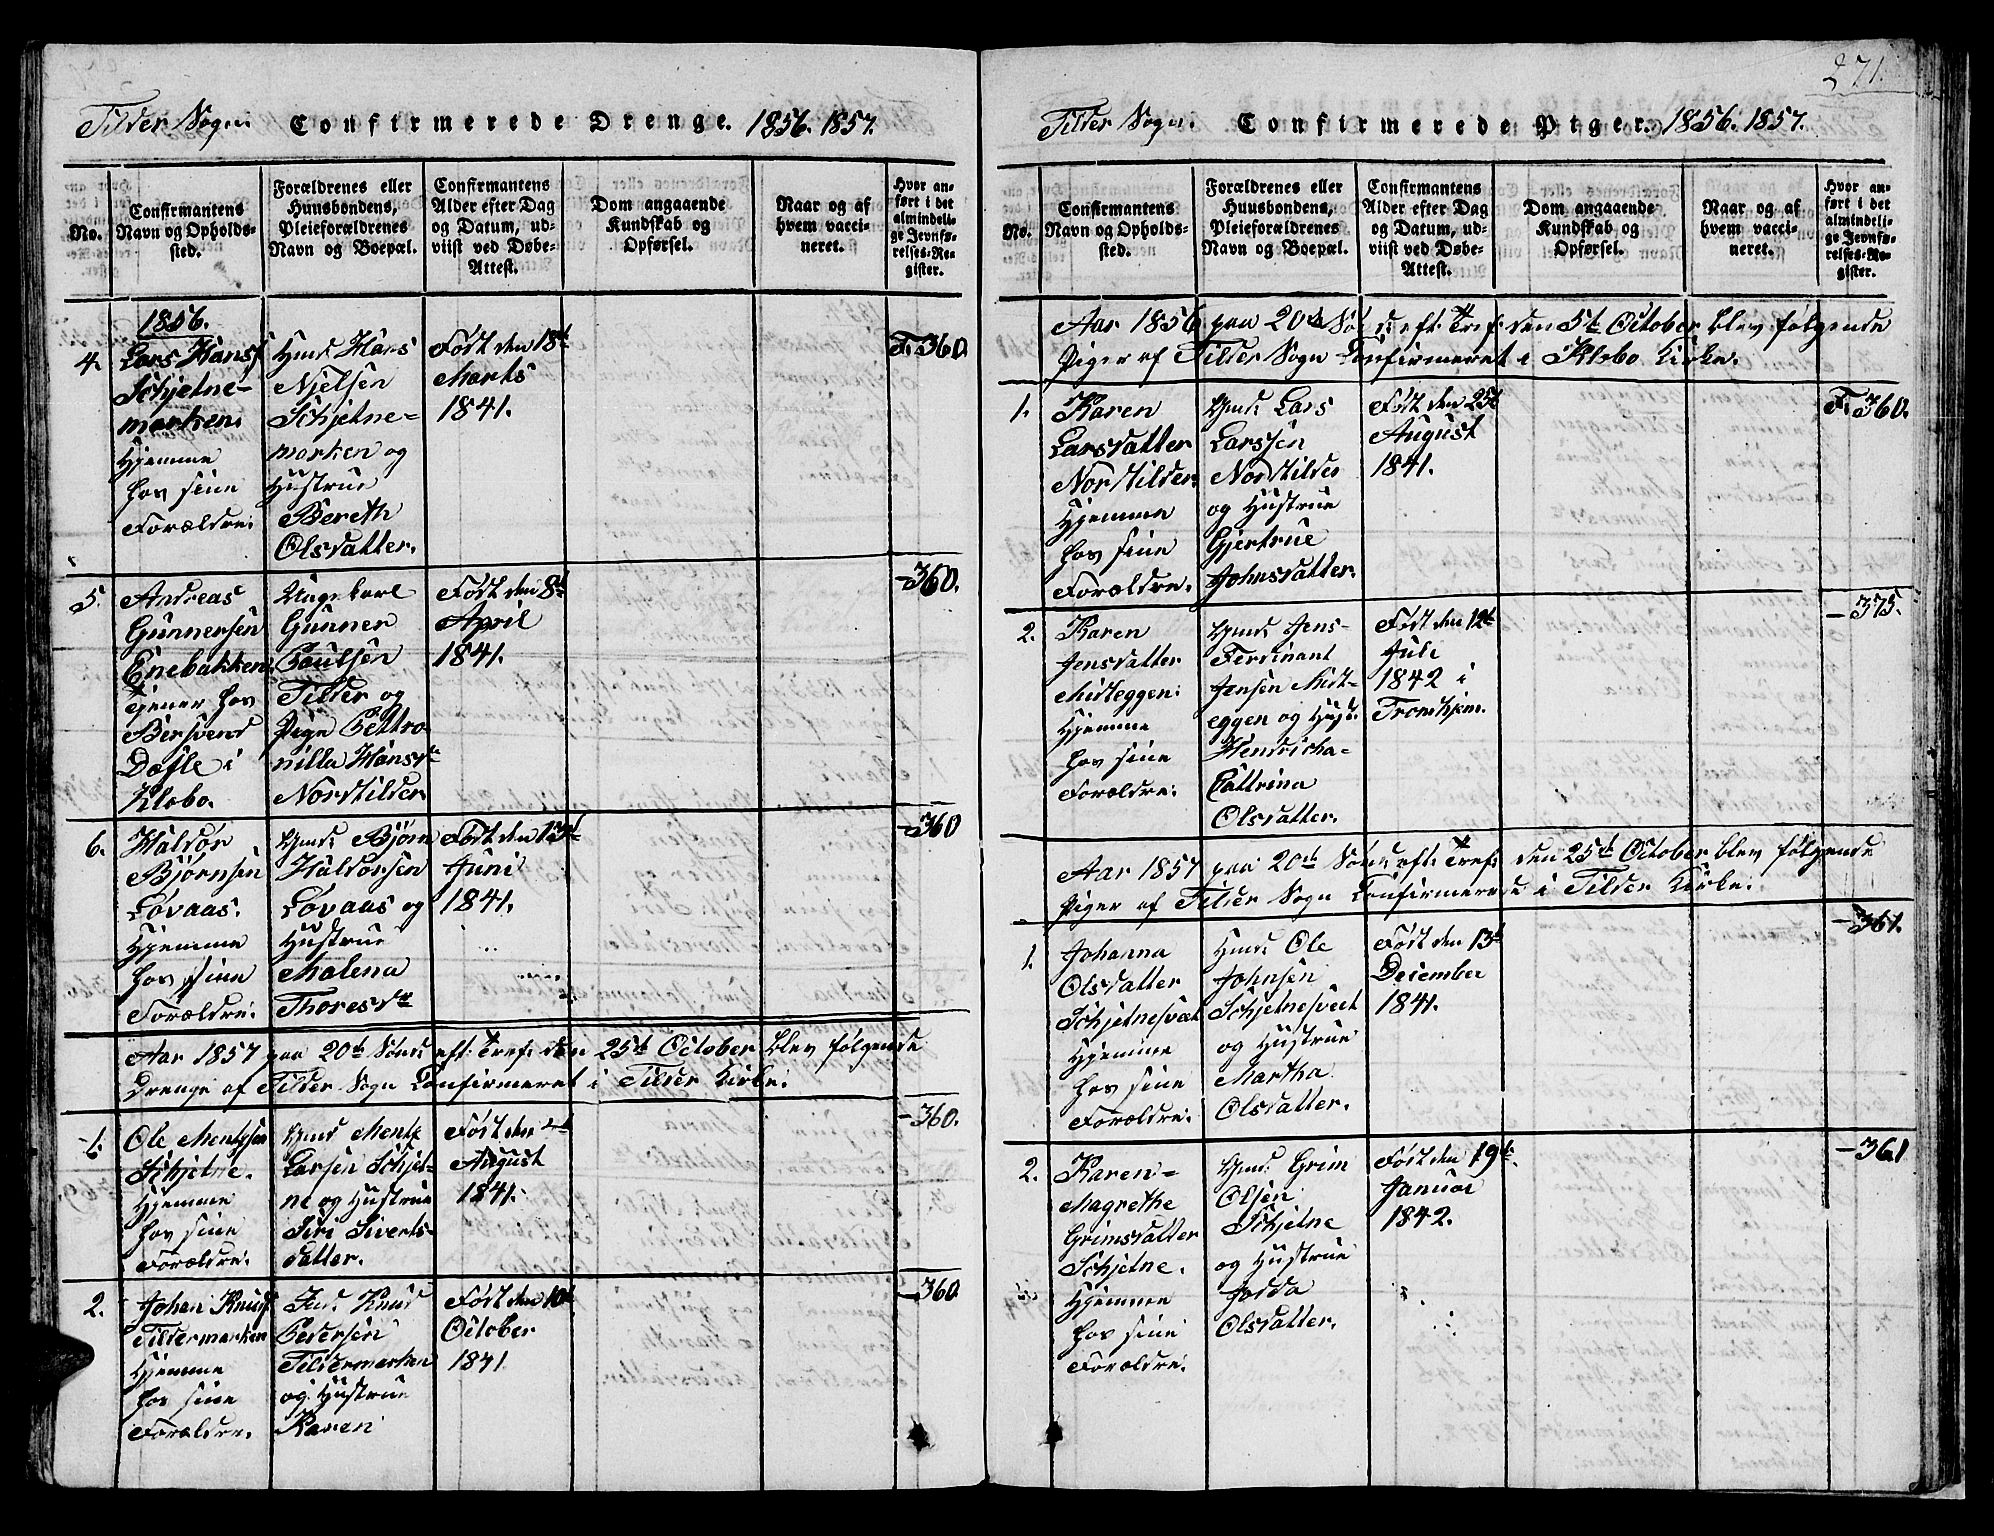 Tilder Sogn. Confirmerede Drenge. 1856. 1857.
No.
Confirmantens
Navn og Opholds-
sted.
Forældrenes eller
Huusbondens,
Pleieforældrenes
Navn og Boepæl.
Confirmantens
Alder efter Dag
og Datum, ud-
viist ved Døbe-
Attest.
Dom angaaende
Kundskab og
Opførsel.
Naar og af
hvem vacci-
neret.
Hvor an-
ført i det
almindeli-
ge Jevnfø-
relses-Re-
gister.
1856.
4.
Lars Hans
Schjetne-
marken.
Hjemme
hos sine
Forældre.
Hmd. Hans
Nielsen
Schjetne=
marken og
Hustrue
Bereth
Olsdatter.
Født den 18de
Marts
1841.
F. 360.
5.
Andreas
Gunnersen
Enebakken.
Tjener hos
Bersvend
Dafle i
Klæbo.
Ungekarl
Gunner
Paulsen
Tilder og
Pige Pettro
nilla Hansd.
Nordtilder.
Født den 8de
April
1841.
-360.
6.
Haldor
Bjørnsen
Løvaas.
Hjemme
hos sine
Forældre.
Hmd. Bjørn
Haldorsen
Løvaas og
Hustrue
Malena
Thoresdr
Født den 13de
Juni
1841.
-360
Aar 1857 paa 20de Sønd. eft. Tref. den 25de October blev følgende
Drenge af Tilder Sogn Confirmeret i Tilder Kirke.
1.
Ole Mentzsen
Schjetne.
Hjemme
hos sine
Forældre.
Hmd. Mentz
Larsen Schjet-
ne og Hustrue
Siri Siverts-
datter.
Født den
August
1841.
-360.
2.
Johan Knuds
Tildermarken
Hjemme
hos sine
Forældre.
Ind. Knud
Pedersen
Tildermarken
og Hustrue
Karen
Født den 10de
October
1841.
-360
271.
Tilder Sogn. Confirmerede Piger. 1856. 1857.
No.
Confirmantens
Navn og Opholds-
sted.
Forældrenes eller
Huusbondens,
Pleieforældrenes
Navn og Boepæl.
Confirmantens
Alder efter Dag
og Datum, ud-
viist ved Døbe-
Attest.
Dom angaaende
Kundskab og
Opførsel.
Naar og af
hvem vacci-
neret.
Hvor an-
ført i det
almindeli-
ge Jevnfø-
relses-Re-
gister.
Aar 1856 paa 20de Sønd. eft. Tref. den 5te October blev følgende
Piger af Tilder Sogn Confirmeret i Klæbo Kirke.
1.
Karen
Larsdatter
Nordtilder.
Hjemme
hos sine
Forældre.
Hmd. Lars
Larssen
Nordtilder
og Hustrue
Gjertrue
Johnsdatter.
Født den 25de
August
1841.
F. 360.
2.
Karen
Jensdatter
Midteggen.
Hjemme
hos sine
Forældre.
Hmd. Jens-
Ferdinant
Jensen Midt-
eggen og Hust.
Hendricha-
Cattrina
Olsdatter.
Født den 12te
Juli
1842 i
Tromhjem.
-375.
Aar 1857 paa 20de Sønd. eft. Tref. den 25de October blev følgende
Piger af Tilder Sogn Confirmerede i Tilder Kirke.
1.
Johanna
Olsdatter
Schjetnesvet
Hjemme
hos sine
Forældre.
Hmd. Ole
Johnsen
Schjetnesveet
og Hustrue
Martha
Olsdatter.
Født den 13de
December
1841.
-361.
2.
Karen=
Magrethe
Grimsdatter
Schjetne.
Hjemme
hos sine
Forældre.
Hmd. Grim
Olsen
Schjetne
og Hustrue
Jodda
Olsdatter.
Født den 19de
Januar
1842.
-361